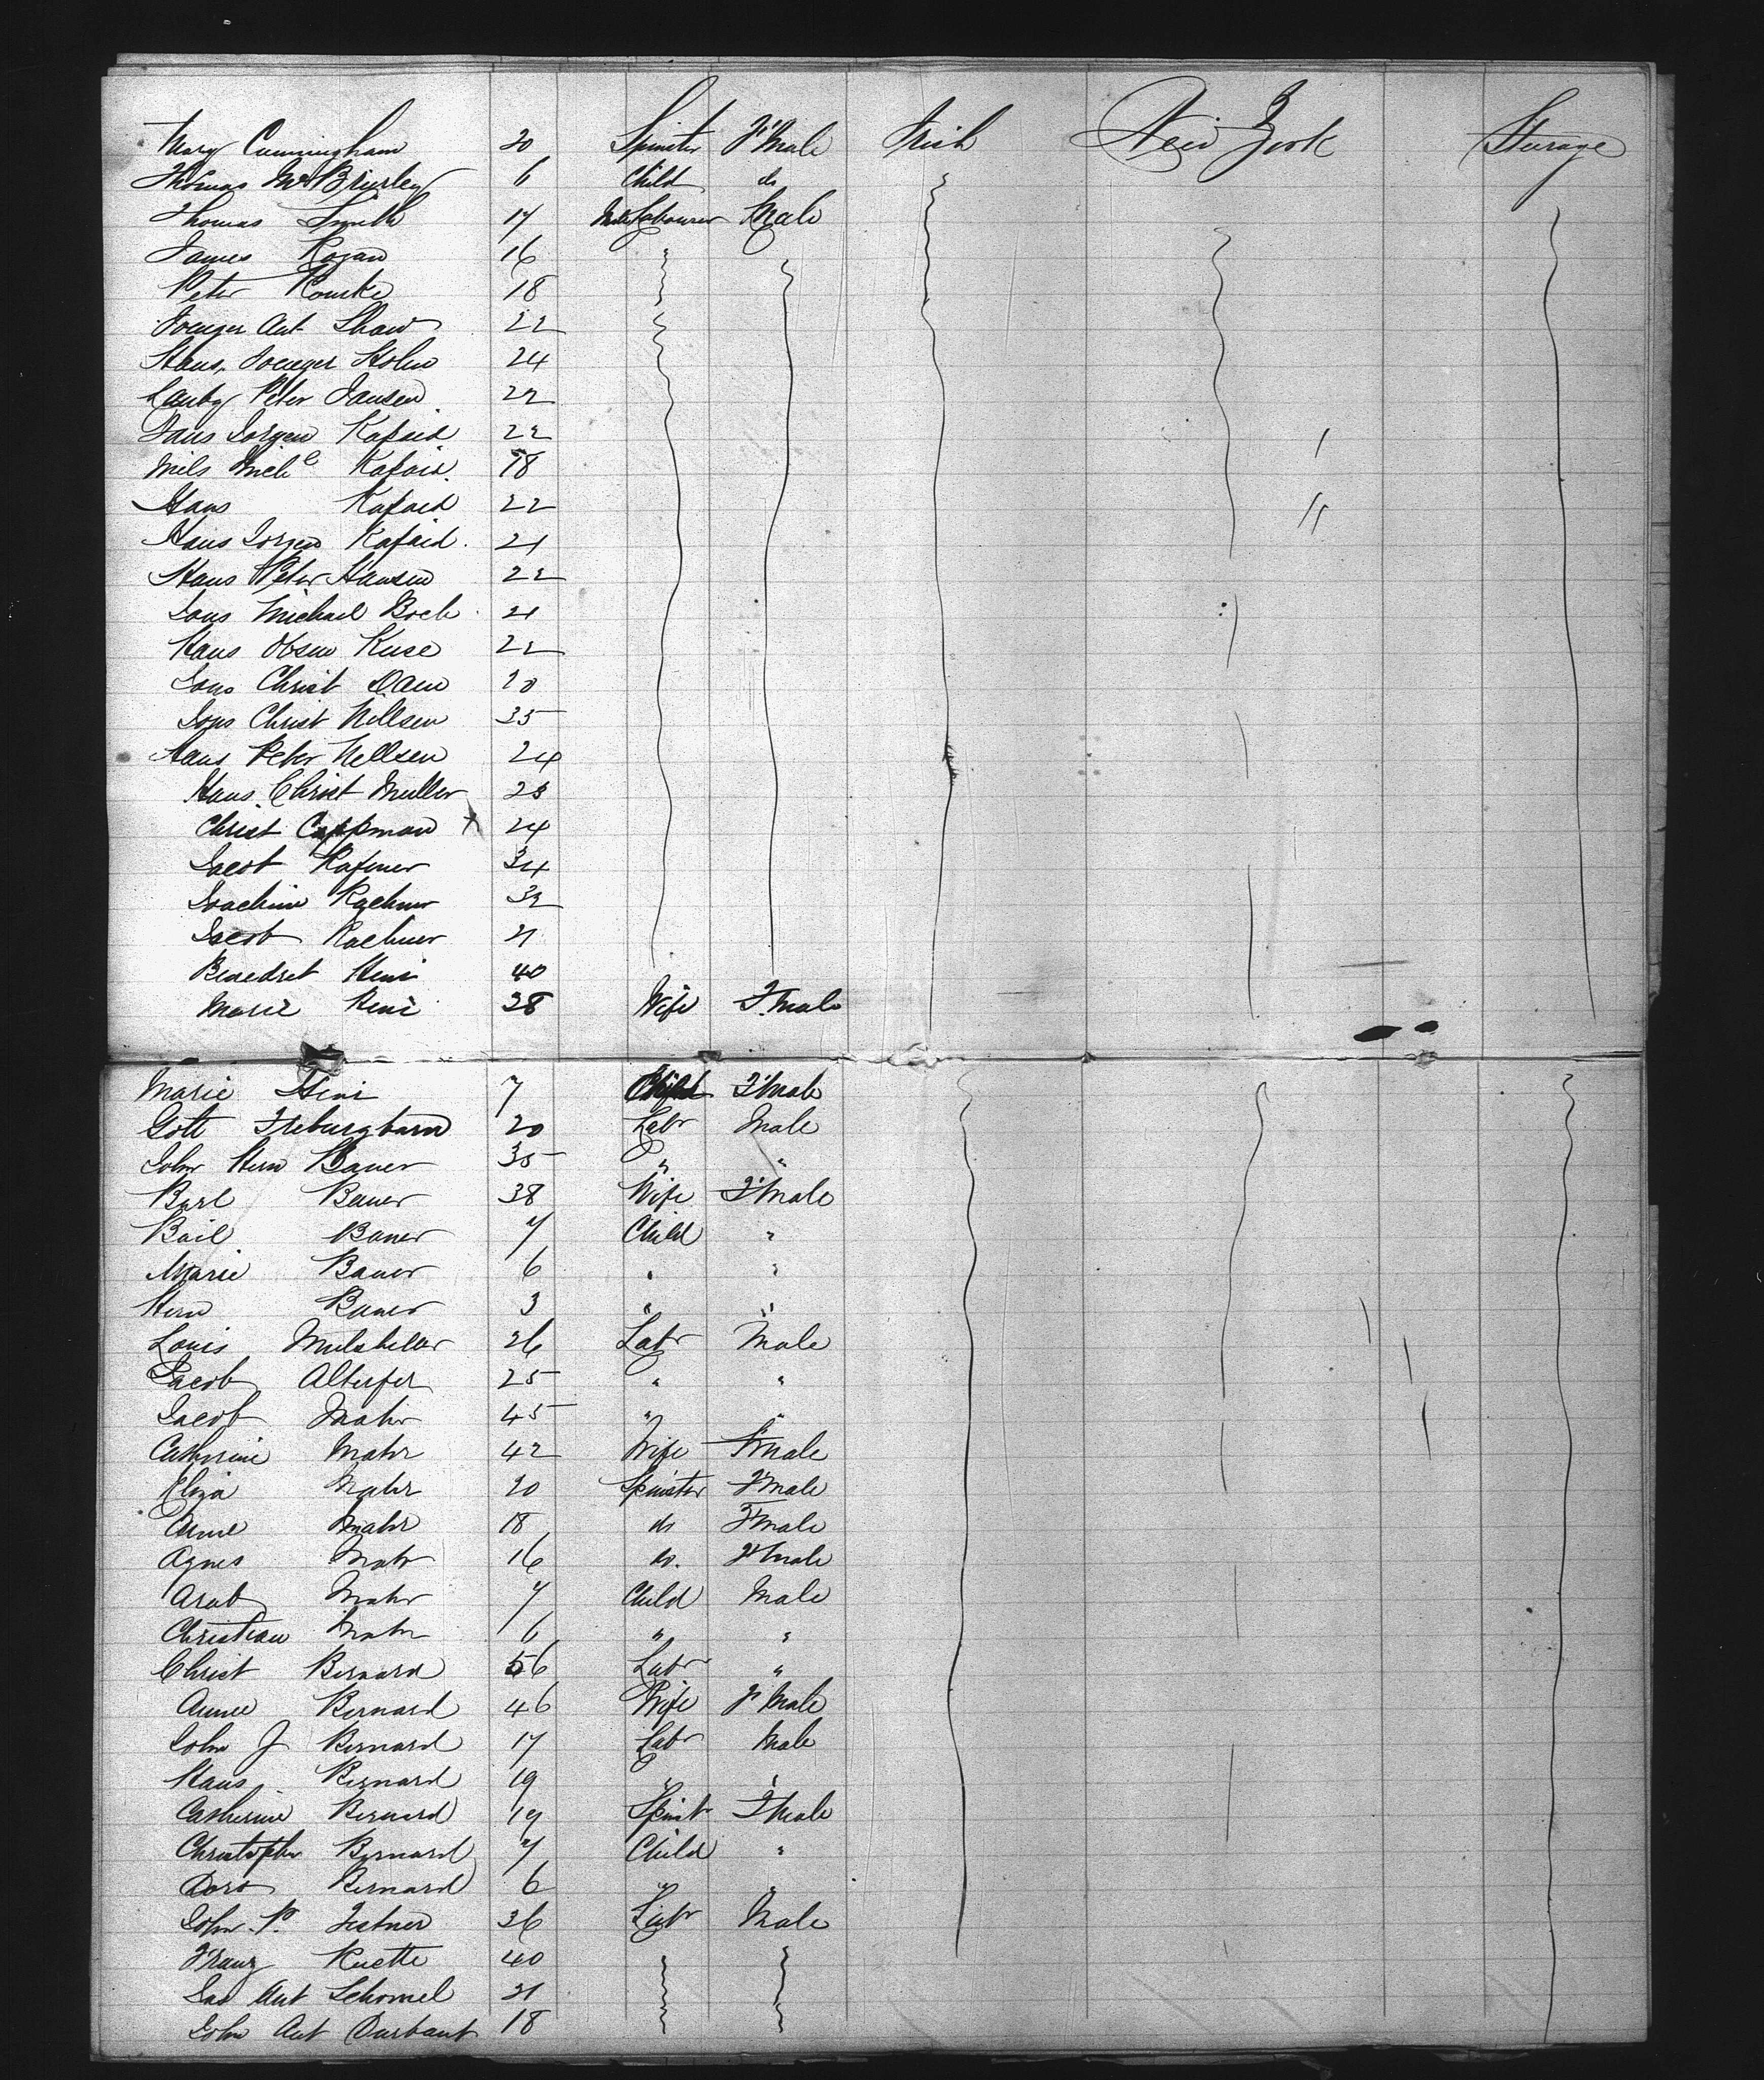 Mary Cunningham 20 Spinster F'Male Irish New York Steerage
Thomas McBrierley 6 Child do
Thomas Smith 17 Labourer Male
James Rogan 16
Peter Rourke 18
Joenger Ant Shaw 22
Hans Joenger Holm 24
Lauby Peter Jansen 22
Jans Jorgen Kafaid 22
Nils Michl Kafaid 18
Hans Kafaid 22
Hans Jorgen Kafaid 21
Hans Peter Hansen 22
Jons Michael Bock 21
Hans Obsen Kuse 22
Jons Christ Daen 20
Jons Christ Nellsen 35
Hans Peter Nellsen 24
Hans Christ Muller 23
Christ Cappman x 24
Jacob Rafener 34
Joachim Raehner 32
Jacob Raehner 21
Benedret Heni 40
Marie Heni 38 Wife F.Male
Marie Heni 7 Child F'Male
Gott Freburgbarn 20 Labr Male
John Hern Bauer 35 " "
Barl Bauer 38 Wife F'Male
Bail Bauer 7 Child "
Marie Bauer 6 " "
Hern Bauer 3 " "
Louis Mulabeller 26 Labr Male
Jacob Alterfer 25 " "
Jacob Mahr 45 " "
Catherine Mahr 42 Wife F'Male
Eliza Mahr 20 Spinster F'Male
Anne Mahr 18 do F'Male
Agnes Mahr 16 do. F'Male
Arab Mahr 7 Child Male
Christian Mahr 6 " "
Christ Bernard 56 Labr "
Annee Bernard 46 Wife F'Male
John J Bernard 17 Labr Male
Hans Bernard 19 " "
Catherine Bernard 19 Spinstr F'Male
Christopher Bernard 7 Child "
Doro Bernard 6 " "
John P. Festner 36 Labr Male
Franz Ruette 40
Jas Ant Schomel 21
John Ant Durbant 18